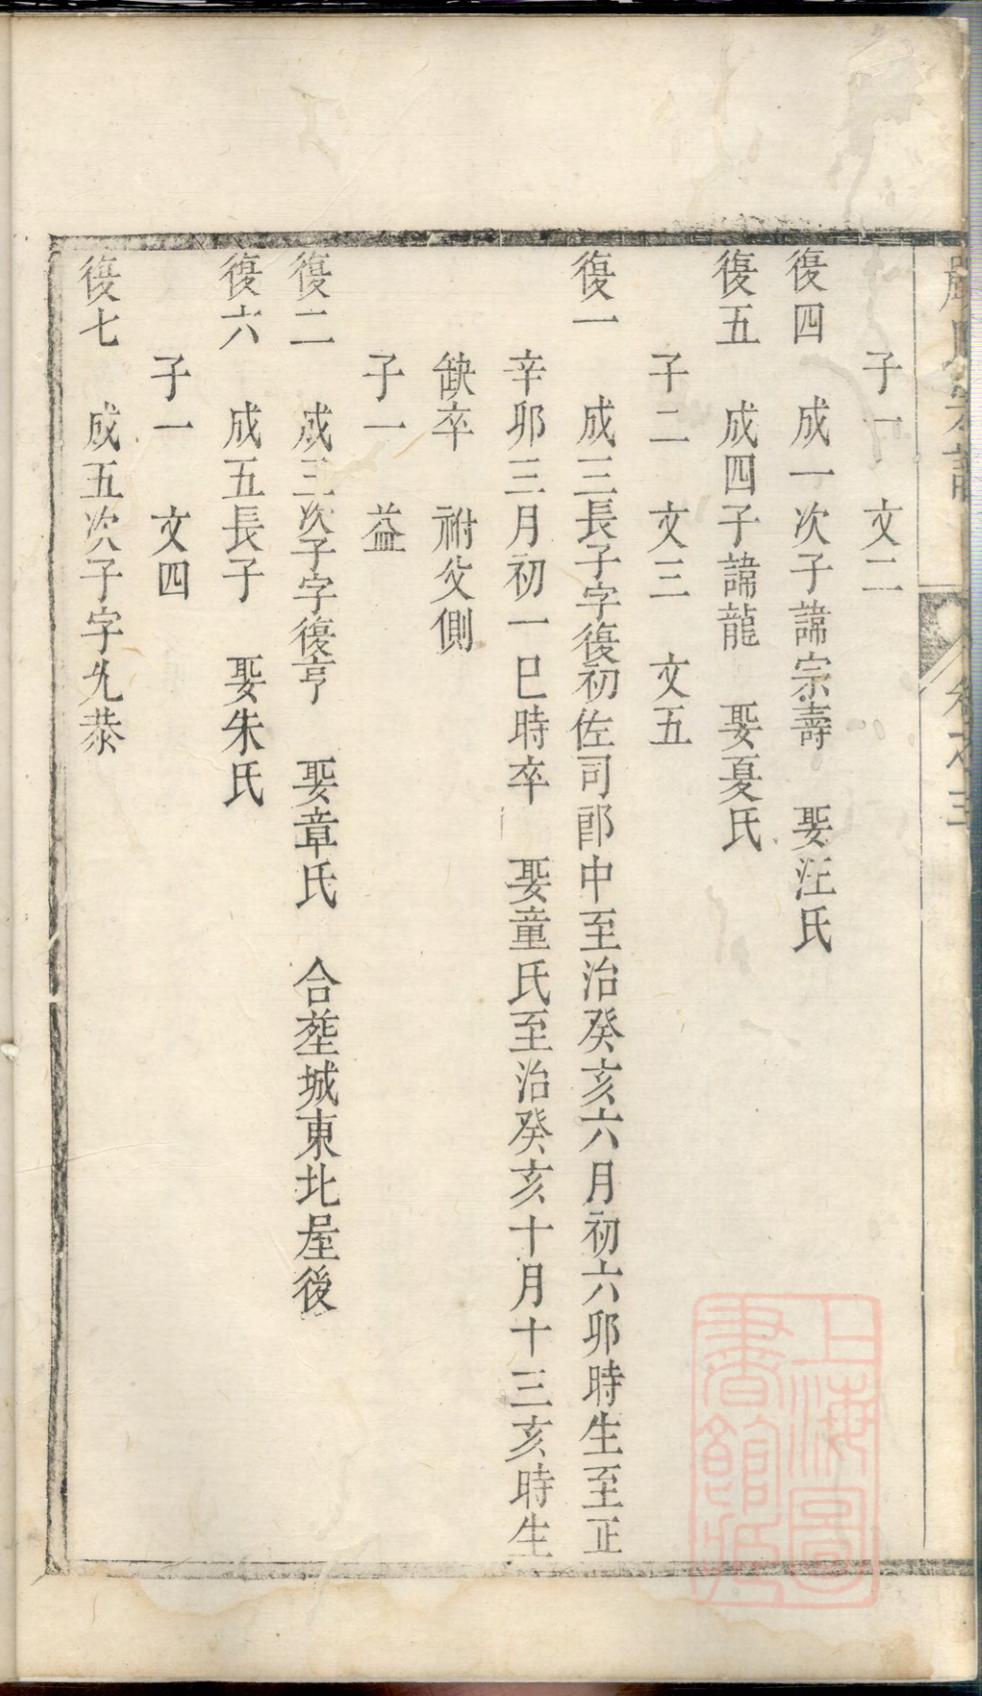 子一　文二
復四　成一次子諱宗壽　娶汪氏
復五　成四子諱龍　娶夏氏
子二　文三　文五
復一　成三長子字復初佐司郎中至治癸亥六月初六卯時生至正
辛卯三月初一巳時卒　娶童氏至治癸亥十月十三亥時生
缺卒　祔父側
子一　益
復二　成三次子字復亨　娶章氏　合塟城東北屋後
復六　成五長子　娶朱氏
子一　文四
復七　成五次子字允恭
上海圖書館藏